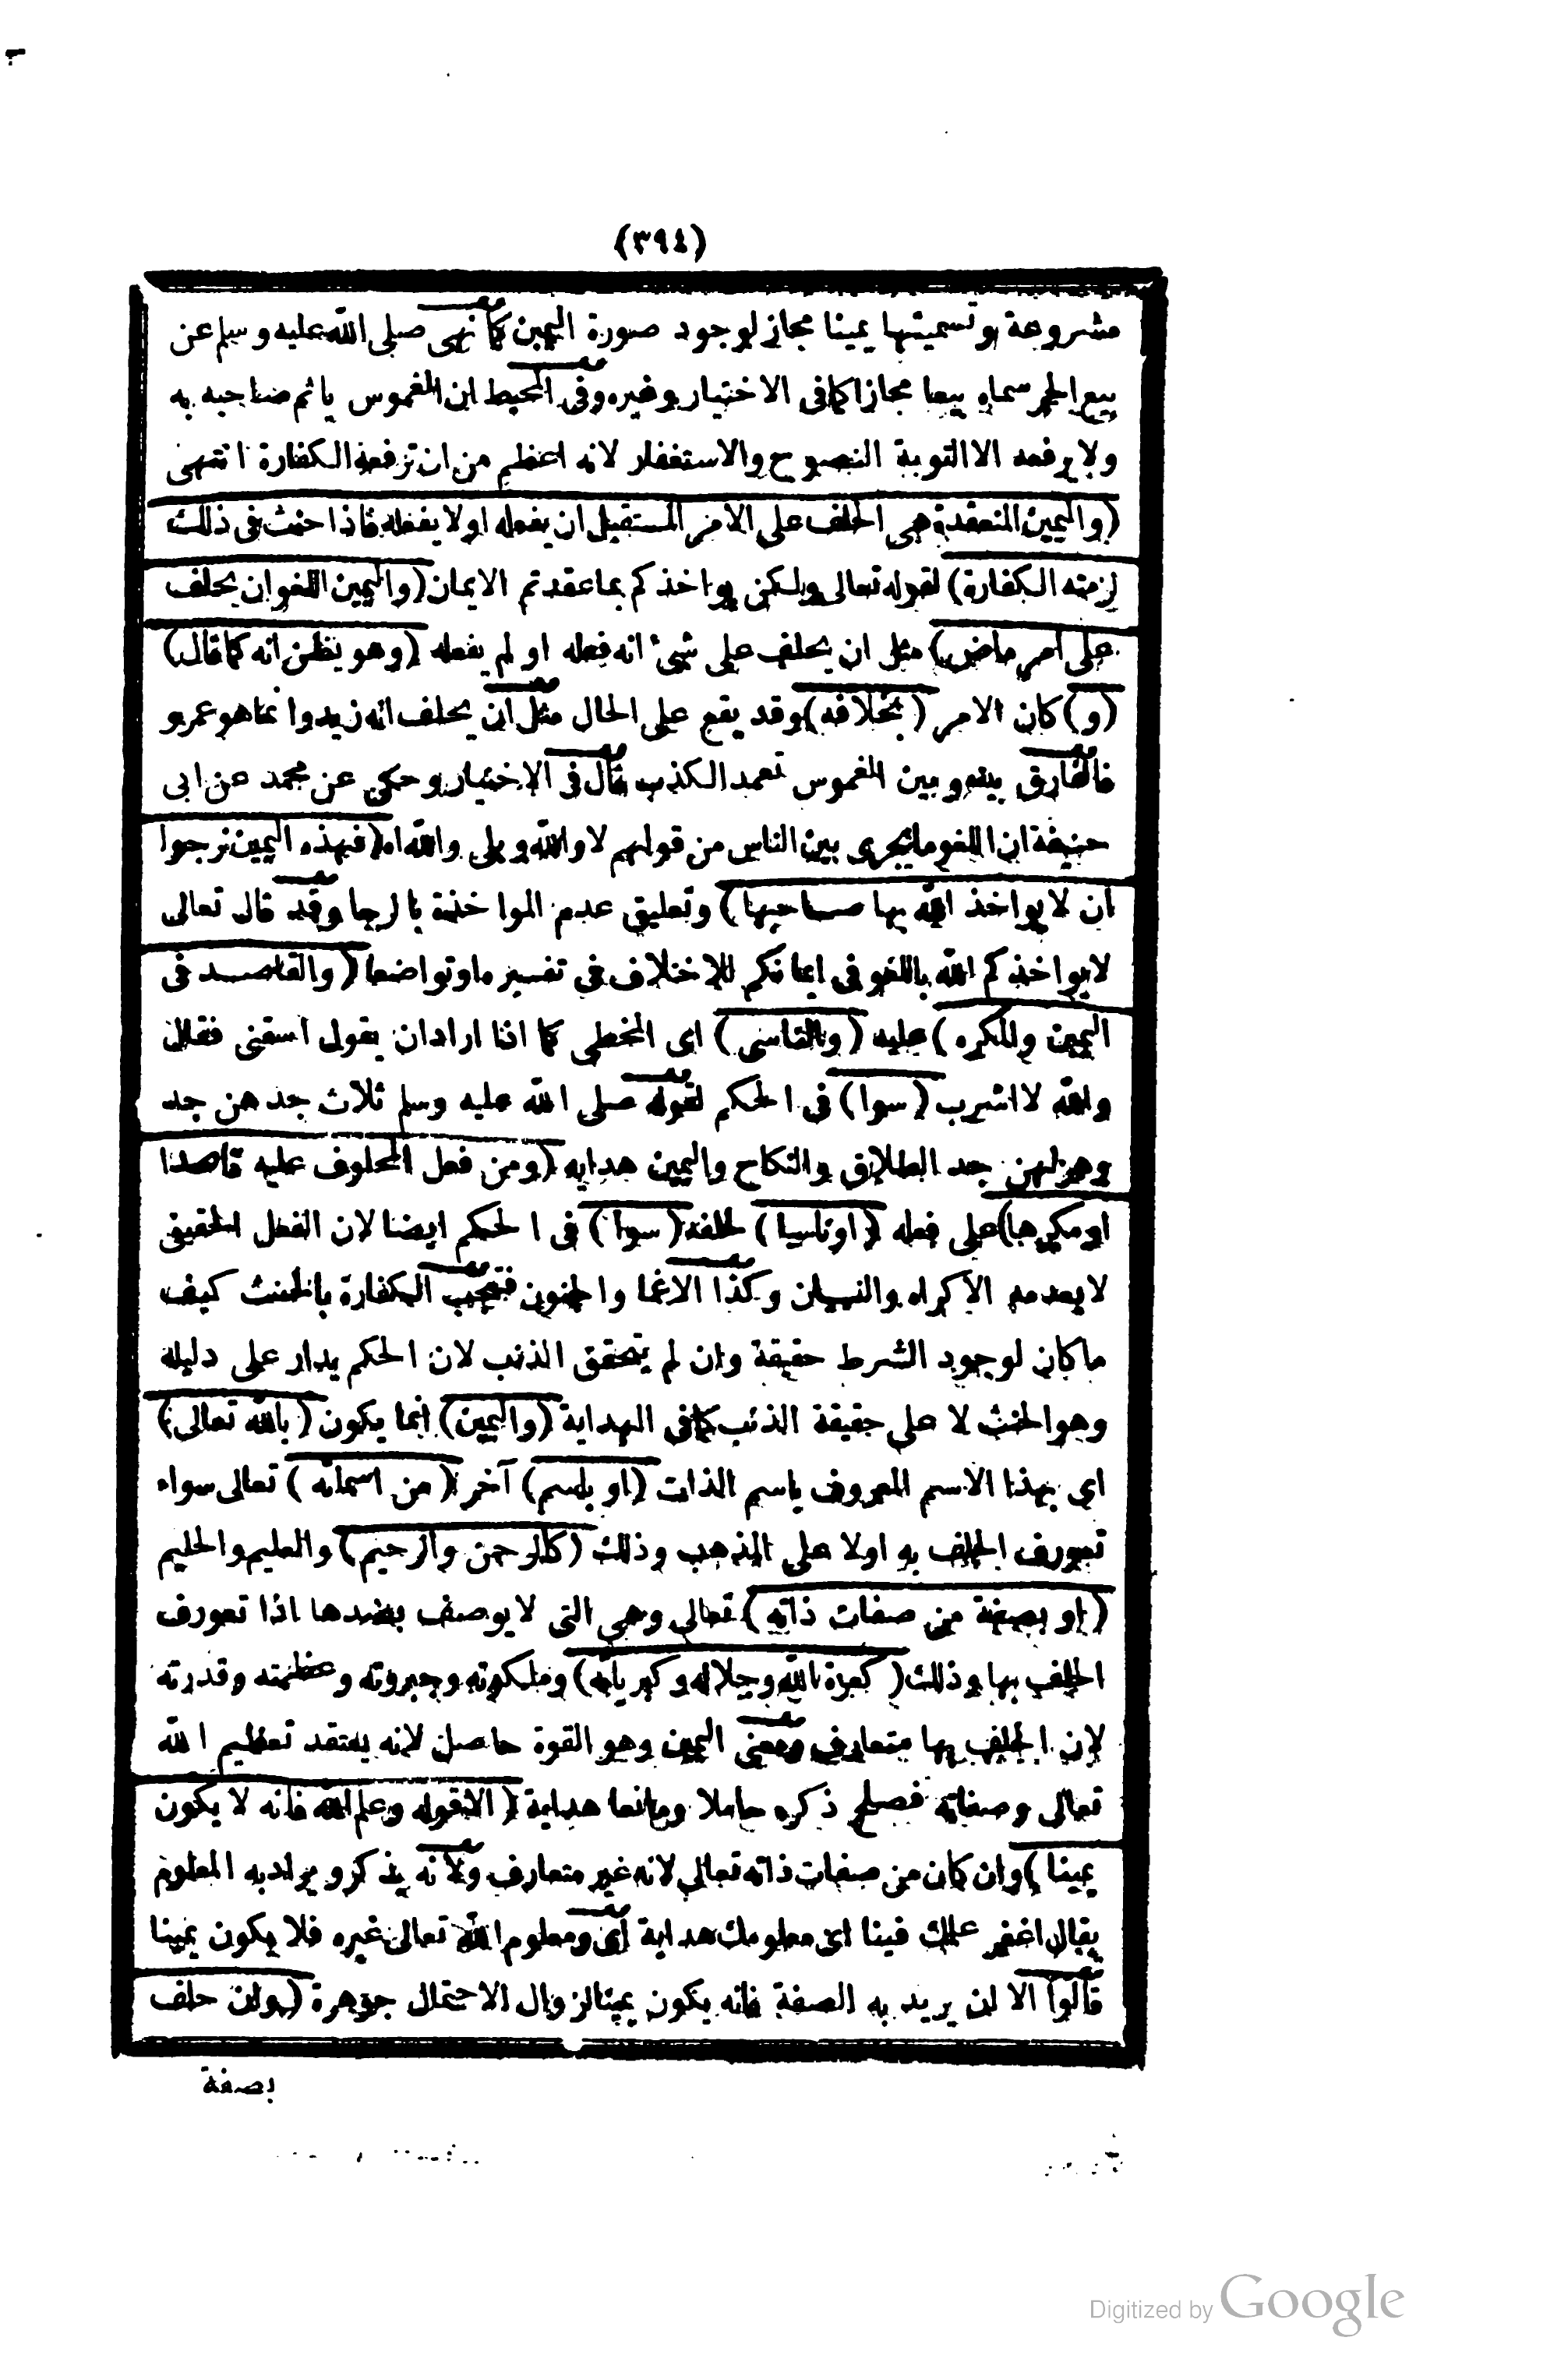 (٣٩٤)
مشروعة وتسميتها يمينا مجاز لوجود صورة اليمين كما نهى صلى الله عليه وسلم عن
بيع الحر سماه بيعا مجازا كما فى الاختيار وغيره وفى المحيط ان الغموس ياثم صاحبه به
ولا يرفعه الا التوبة النصوح والاستغفار لانه اعظم من ان ترفعه الكفارة انتهى
(واليمين المنعقدة هى الحلف على الامر المستقبل ان يفعله او لا يفعله فاذا حنث فى ذلك
لزمته الكفارة) لقوله تعالى ولكن يواخذكم بما عقدتم الايمان (واليمين اللغو ان يحلف
على امر ماض) مثل ان يحلف على شىء انه فعله او لم يفعله (وهو يظن انه كما قال)
(و) كان الامر (بخلافه) وقد يقع على الحال مثل ان يحلف انه زيد وانما هو عمرو
فالفارق بينه وبين الغموس تعمد الكذب قال فى الاختيار وحكى عن محمد عن ابى
حنيفة ان اللغو ما يجرى بين الناس من قولهم لا والله وبلى والله اه (فهذه اليمين نرجوا
ان لا يواخذ الله بها صاحبها) وتعليق عدم المواخذة بالرجا وقد قال تعالى
لا يواخذكم الله باللغو فى ايمانكم للاختلاف فى تفسيره او تواضعا (والقاصد فى
اليمين والمكره) عليه (والناسى) اى المخطى كما اذا اراد ان يقول اسقنى فقال
والله لا اشرب (سوا) فى الحكم لقوله صلى الله عليه وسلم ثلاث جدهن جد
وهزلهن جد الطلاق والنكاح واليمين هدايه (ومن فعل المحلوف عليه قاصدا
او مكرها) على فعله (او ناسيا) لحلفه (سوا) فى الحكم ايضا لان الفعل الحقيقى
لا يعدمه الاكراه والنسيان وكذا الاغما والجنون فتجب الكفارة بالحنث كيف
ما كان لوجود الشرط حقيقة وان لم يتحقق الذنب لان الحكم يدار على دليله
وهو الحنث لا على حقيقة الذنب كما فى الهداية (واليمين) انما يكون (بالله تعالى)
اى بهذا الاسم المعروف باسم الذات (او باسم) آخر (من اسمائه) تعالى سواء
تعورف الحلف به اولا على المذهب وذلك (كالرحمن والرحيم) والعليم والحليم
(او بصفة من صفات ذاته) تعالى وهى التى لا يوصف بضدها اذا تعورف
الحلف بها وذلك (كعزة الله وجلاله وكبريائه) وملكوته وجبروته وعظمته وقدرته
لان الحلف بها متعارف ومعنى اليمين وهو القوة حاصل لانه يعتقد تعظيم الله
تعالى وصفاته فصلح ذكره حاملا ومانعا هداية (الا قوله وعلم الله فانه لا يكون
يمينا) وان كان من صفات ذاته تعالى لانه غير متعارف ولانه يذكر ويراد به المعلوم
يقال اغفر علمك فينا اى معلومك هداية اى ومعلوم الله تعالى غيره فلا يكون يمينا
قالوا الا ان يريد به الصفة فانه يكون يمينا لزوال الاحتمال جوهرة (وان حلف
بصفة
Digitized by Google